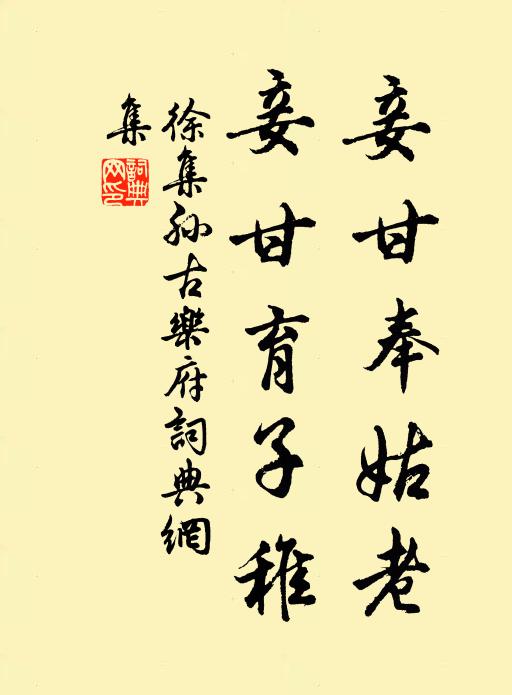 妾甘奉姑老
妾甘育子稚
徐集孙古樂府詞典網
集
詞典網印